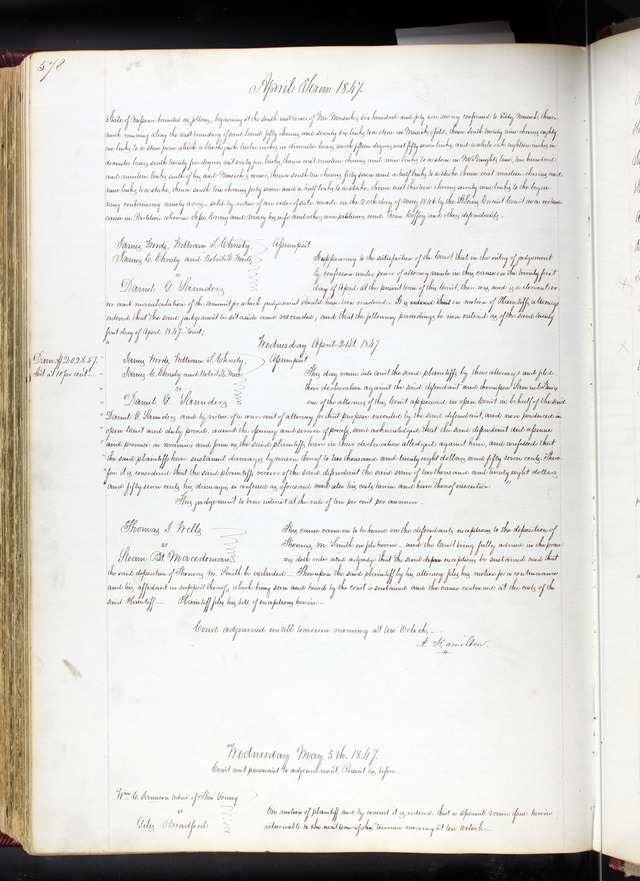 578
April Term 1847.
State of Missouri bounded as follows, beginning at the south east corner of Wm Musick, six hundred and forty acre survey confirmed to Musick, thence
north running along the east boundary of said tract fifty chains and seventy six links to a stone in Musick's field, thence South twenty nine chains eighty
six links to a stone from which a black jack twelve inches in diameter bears north fifteen degrees east fifty seven links, and a white oak eighteen inches in
diameter bears south twenty five degrees east sixty five links, thence east nineteen chains and nine links to a stone in line, ten hundred
and nineteen links south of his and Musick's corner, thence south ten chains forty seven and a half links to a stake thence east nineteen chains and
nine links to a stake, thence south ten chains forty seven and a half links to a stake, thence east thirteen chains seventy nine links to the begin-
ning containing ninety acres, sold by virtue of an order of sale made on the 20th day of May 1846 by the St Louis Circuit Court in a certain
cause in Partition wherein and Mary his wife and others, were petitioners and Coffey and others defendants.
James Woods, William T. Christy
James C. Christy and Robert K. Woods
vs
Daniel G. Saunders
Assumpsit
It appearing to the satisfaction of the Court that in the entry of judgement
by confession under power of attorney made in this cause on the twenty first
day of April at the present term of this Court, there was and is a clerical er-
ror and miscalculation of the amount for which judgement should have been rendered. It is ordered that on motion of Plaintiffs attorney
ordered that the said judgement be set aside and rescinded, and that the following proceedings be now entered as of the said twenty
first day of April 1847. Court.
Wednesday April 21st 1847
Dam $2028.57.
Int at 10 per cent
James Woods, William T. Christy,
James C. Christy and Robert K. Woods
vs
Daniel G Saunders
Assumpsit
This day came into court the said plaintiffs by their attorney and filed
their declaration against the said defendant and thereupon Samuel
one of the attorneys of this Court appeared in open Court on behalf of the said
Daniel G. Saunders and by virtue of a warrant of attorney for that purpose executed by the said defendant, and now produced in
open Court and duly proved, waived the issuing and service of process, and acknowledged that the said defendant did assume
and promise in manner and form as the said plaintiffs have in their declaration alledged against him, and confessed that
the said plaintiffs have sustained damages by reason thereof to two thousand and twenty eight dollars and fifty seven cents. There-
fore it is considered that the said plaintiffs recover of the said defendant the said sum of two thousand and twenty eight dollars
and fifty seven cents his damages so confessed as aforesaid and also his costs herein and have thereof execution.
This judgement to bear interest at the rate of ten per cent per annum.
Thomas J. Wells
vs
Sloan Bt. Macedonian
This cause came on to be heard on the defendants exceptions to the deposition of
Thomas M. Smith on file herein - and the Court being fully advised in the prem-
ises doth order and adjudge that the said exceptions be sustained and that
the said deposition of Thomas M. Smith be excluded - Thereupon the said plaintiff by his attorney files his motion for a continuance
and his affidavit in support thereof, which being seen and heard by the court is sustained and the cause continued at the costs of the
said Plaintiff - Plaintiff files his bill of exceptions herein -
Court adjourned untill tomorrow morning at ten Oclock -
A. Hamilton
Wednesday May 5th. 1847.
Court met pursuant to adjournment, Present as before
Wm C. Jamison Admr. of Theo Young
vs
Giles Bradford
On motion of plaintiff and by consent it is ordered that a special venire issue herein
returnable tomorrow morning at ten Oclock -